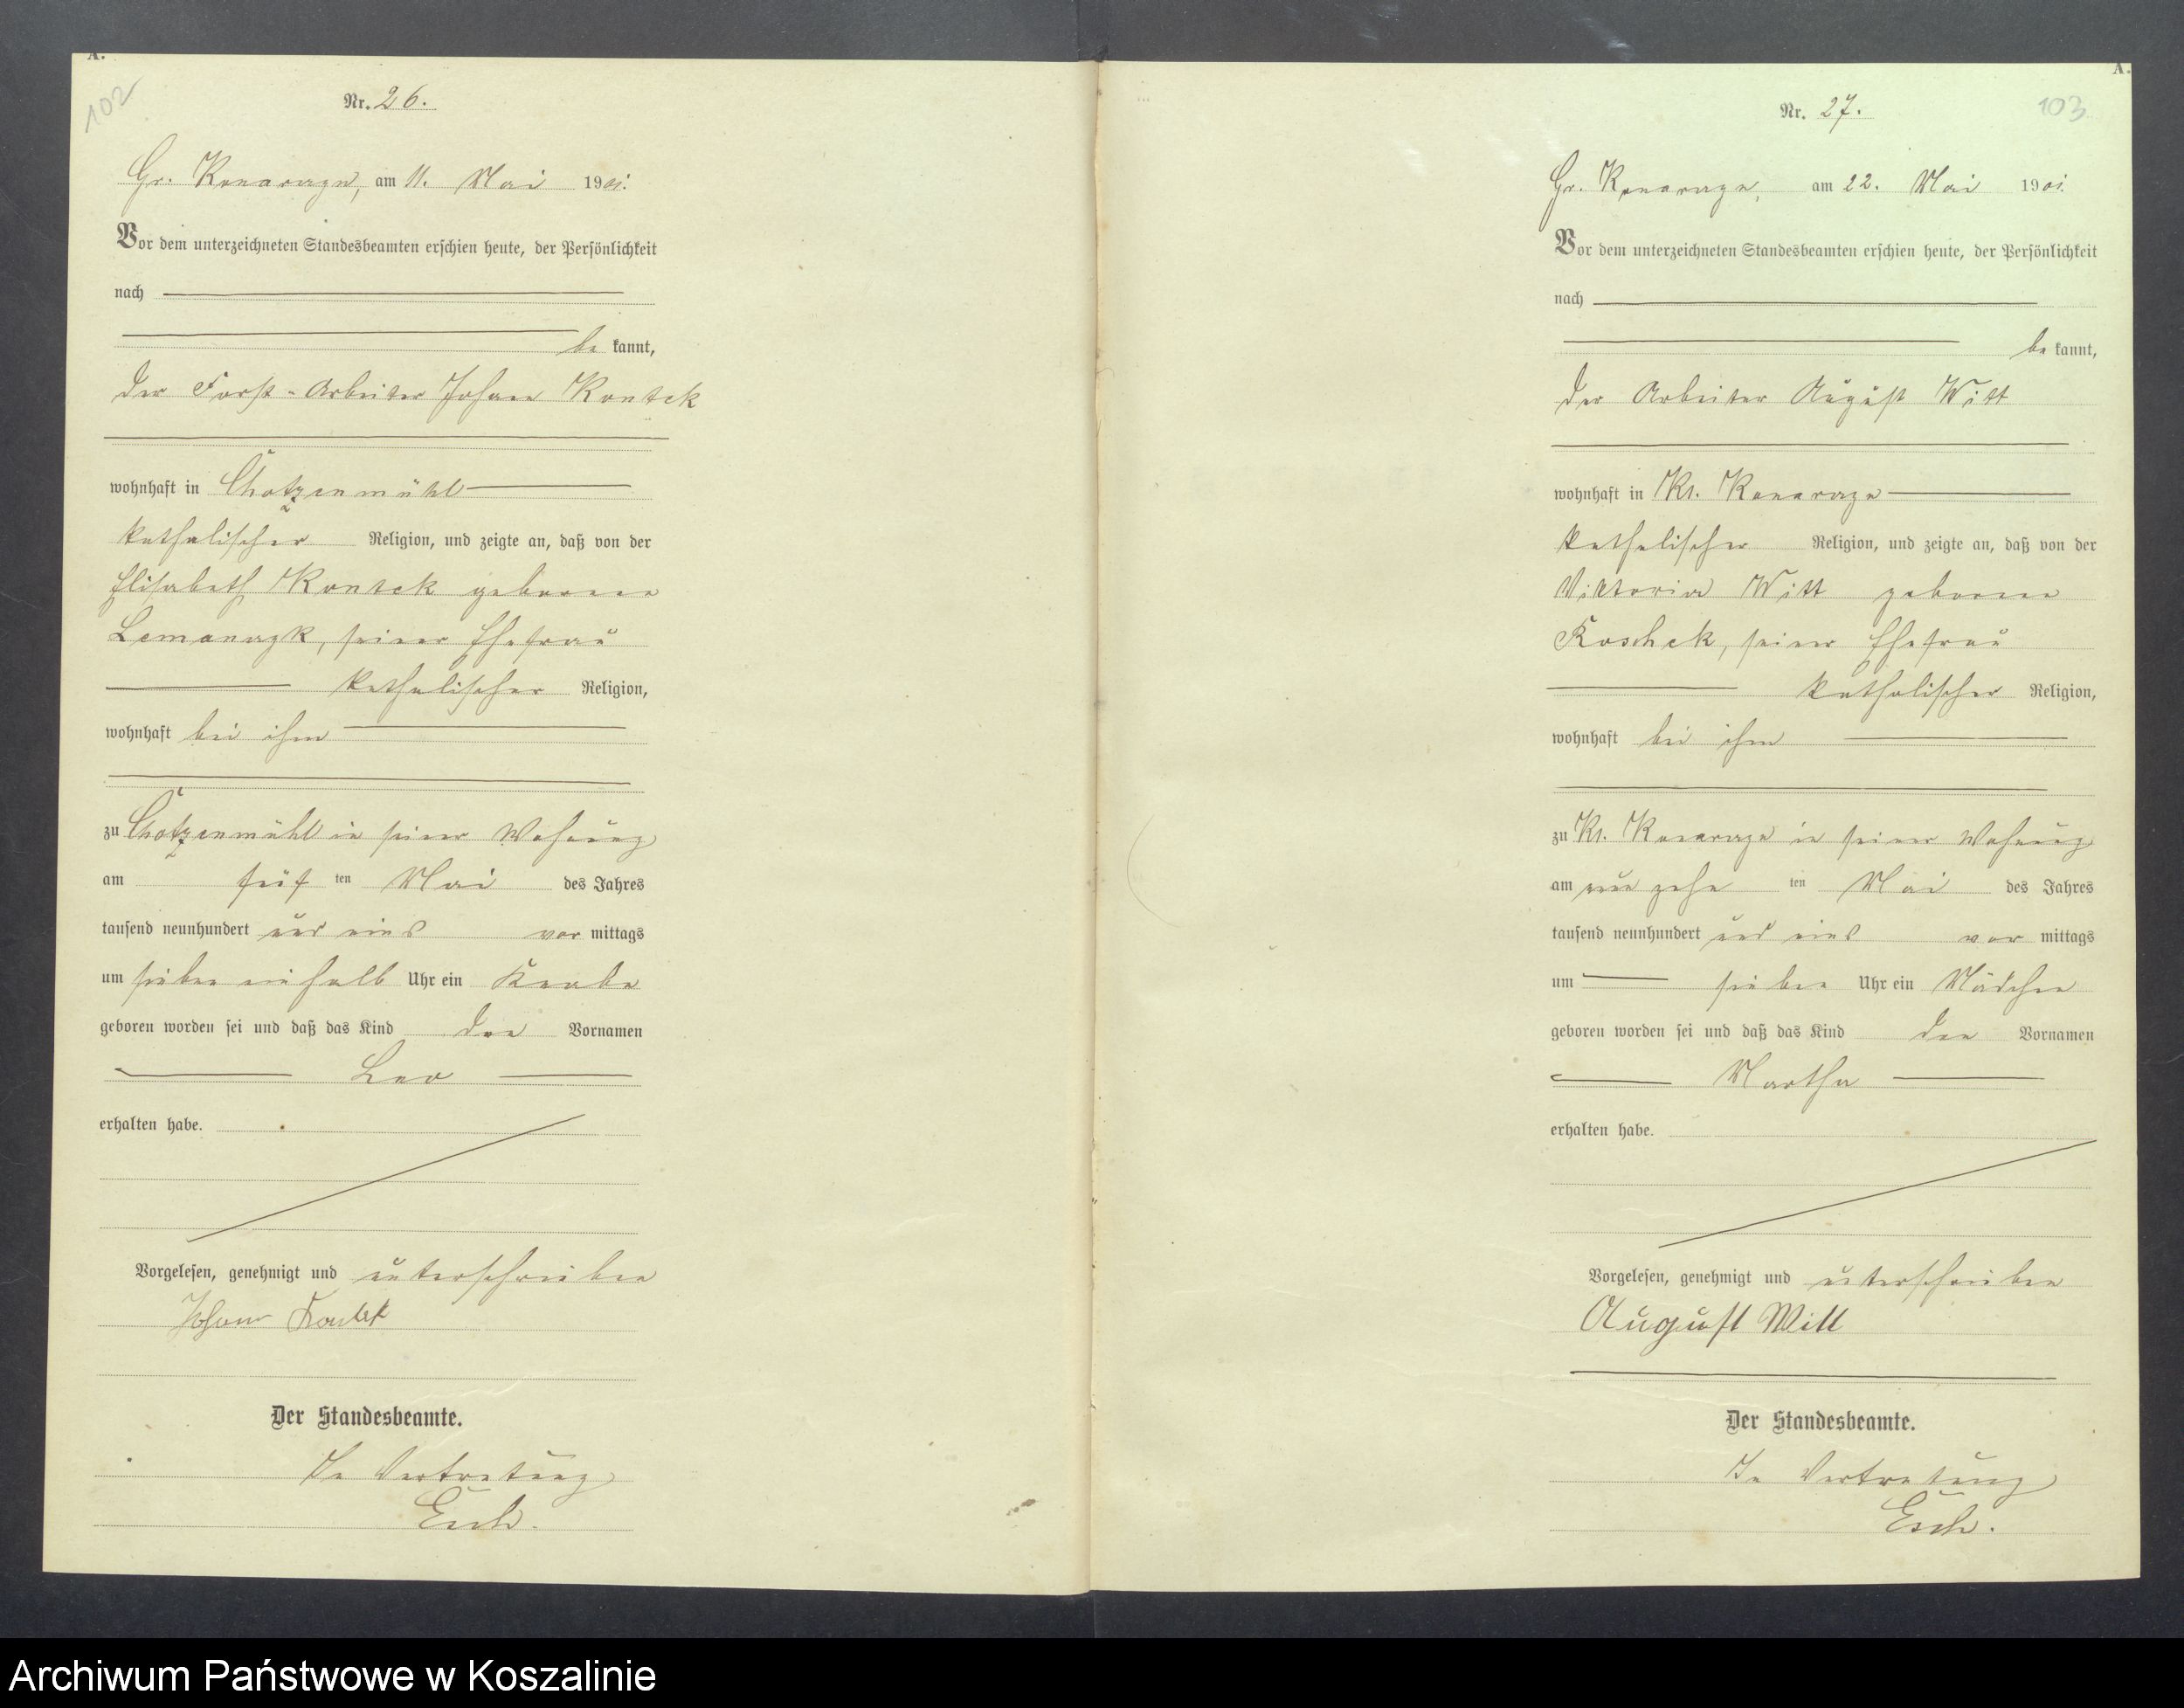 A.
102
Nr. 26.
Gr. Konarczyn, am 11. Mai 1901.
Vor dem unterzeichneten Standesbeamten erschien heute, der Persönlichkeit
nach
be kannt,
der Forst-Arbeiter Johann Kontek
wohnhaft in Chotzenmühl
katholischer Religion, und zeigte an, daß von der
Elisabeth Kontek geborenen
Lemanczk, seiner Ehefrau
katholischer Religion,
wohnhaft bei ihm
zu Chotzenmühl in seiner Wohnung
am fünf ten Mai des Jahres
tausend neunhundert und eins vor mittags
um sieben einhalb Uhr ein Knabe
geboren worden sei und daß das Kind den Vornamen
Leo
erhalten habe.
Vorgelesen, genehmigt und unterschrieben
Johann Kontek
Der Standesbeamte.
In Vertretung
Esch.
A.
103
Nr. 27.
Gr. Konarczyn, am 22. Mai 1901.
Vor dem unterzeichneten Standesbeamten erschien heute, der Persönlichkeit
nach
be kannt,
der Arbeiter August Witt
wohnhaft in Kl. Konarczyn
katholischer Religion, und zeigte an, daß von der
Viktoria Witt geborenen
Koschek, seiner Ehefrau
katholischer Religion,
wohnhaft bei ihm
zu Kl. Konarczyn in seiner Wohnung
am neun zehn ten Mai des Jahres
tausend neunhundert und eins vor mittags
um sieben Uhr ein Mädchen
geboren worden sei und daß das Kind den Vornamen
Martha
erhalten habe.
Vorgelesen, genehmigt und unterschrieben
August Witt
Der Standesbeamte.
In Vertretung
Esch.
Archiwum Państwowe w Koszalinie